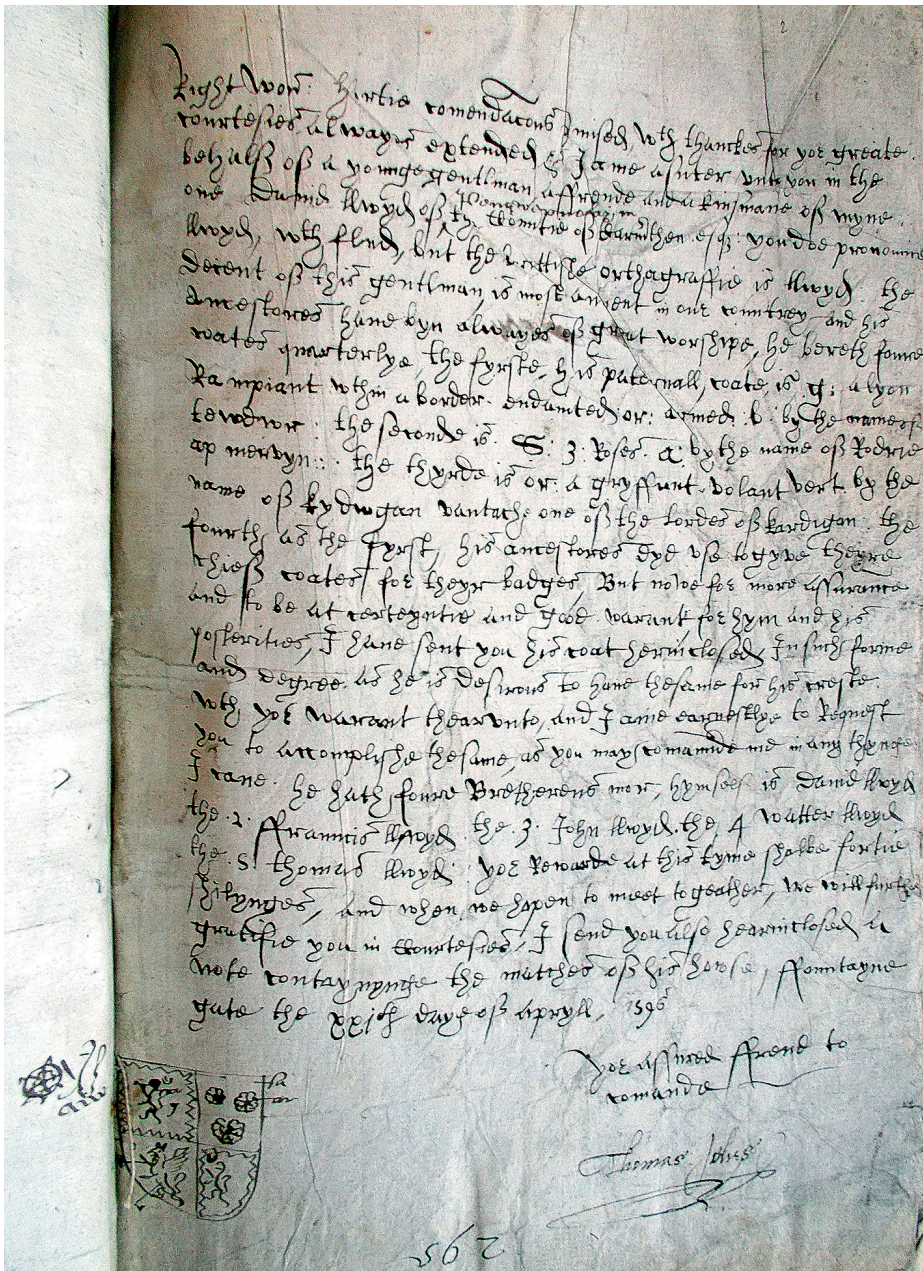 Right wor: hartie comendacons pmised, wth thanckes for yor greate
courtesies alwayes extended & I ame a suter unto you in the
behalff off a younge gentlman a ffrende and a kinsmane off myne
one David llwyd off in
the Countie off Carmthen esq: you doe pronounce
llwyd, wth flud, but the brittishe orthagraffie is llwyd. the
decent off this gentlman is most ancient in our countrey and his
Ancestores have byn alwayes off great worshipe, he bereth foure
coates quarterlye, the fyrste, his paternall coate is g: a lyon
Rampiant wthin a border endented or: armed b: by the name off
tewdwr: the seconde is S: 3: Roses a: by the name off Rodrie
ap mervyn:. the thyrde is or a gryffynt volant vert by the
name off kydwgan vantache one off the lordes off kardigon the
fourth as the fyrst, his ancestores dyd use to gyve theyre
chieff coates for theyr badges, But nowe for more assurance
and to be at certeyntie and good warant for hym and his
posterities, I have sent you his coat herinclosed, In such forme
and degree as he is desirous to have thesame for his creste
wth yor warant thearunto, and I ame earnestlye to Request
you to accomplishe thesame, as you may comannde me in any thynge
I cane. he hath foure Bretherens mor, hymself is David llwyd
the .2. ffrancis llwyd the .3. John llwyd the 4 watter llwyd
the .5. thomas llwyd: yor Rewarde at this tyme shalbe fortie
shilynges, and when we hapen to meet togeather, we will further
gratifie you in Courtesies, I send you also hearinclosed a
note contaynynge the matches off his howse, ffountayne
gate the xxith daye off apryll, 1596
yor assured ffrend to
comande
Thomas Johes
sa
ar
562